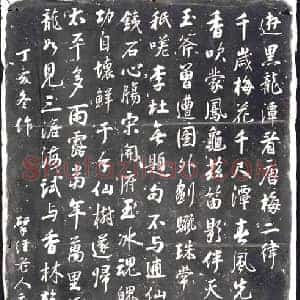 遊黑龍潭看唐梅二律
千歲梅花千尺潭春風先
香吹蒙鳳龜茲笛影伴天
玉斧曾遭圖外劃驪珠常
祇嗟李杜無題句不與逋仙
鐵石心腸宋開府玉冰魂魄
功自壞鮮于手仙樹遂歸
太平多雨露當年萬里
龍如見三滄海試與香林
丁亥冬作 揅經老人元